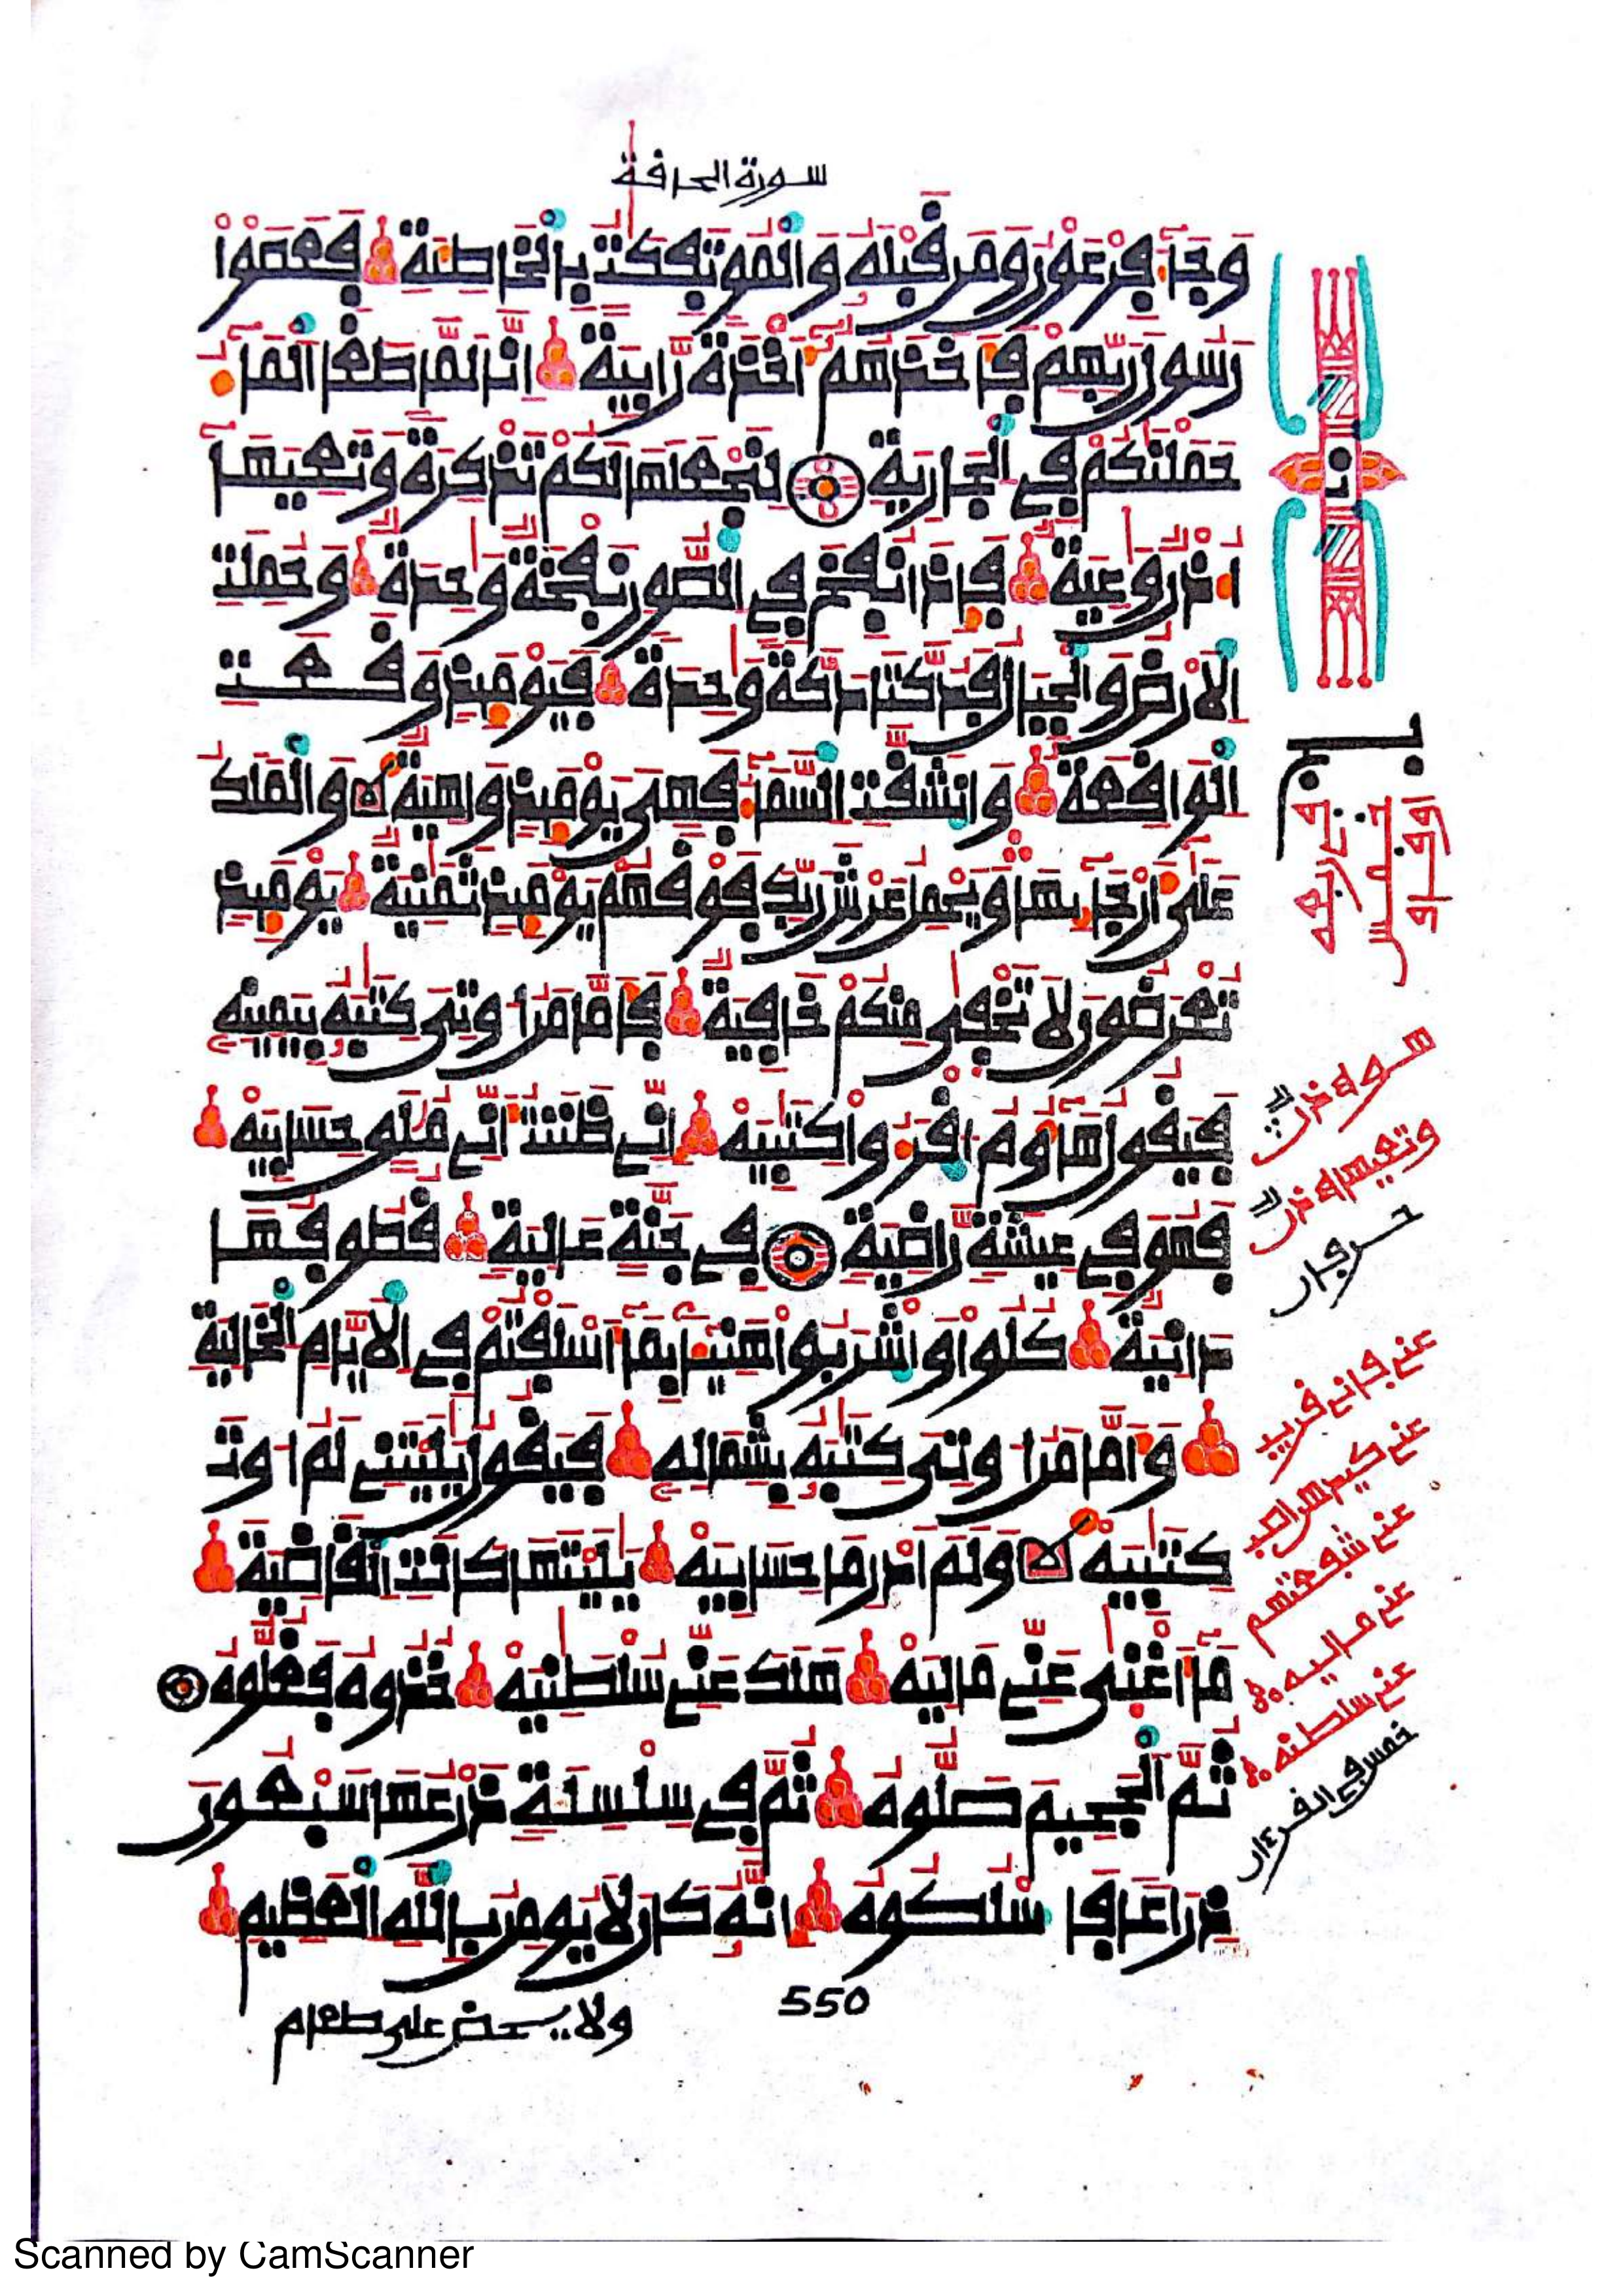 سورة الحافة
وَجَآءَ فِرْعَوْنُ وَمَن قَبْلَهُ وَالْمُوتَفِكَتُ بِالْخَاطِئَةِ فَعَصَوْا
رَسُولَ رَبِّهِمْ فَأَخَذَهُمْ أَخْذَةً رَّابِيَةً اِنَّا لَمَّا طَغَا اَلْمَآءُ
حَمَلْنَكُمْ فِي الْجَارِيَةِ لِنَجْعَلَهَا لَكُمْ تَذْكِرَةً وَتَعِيَهَا
أُذُنٌ وَعِيَةٌ فَإِذَا نُفِخَ فِي الصُّورِ نَفْخَةٌ وَحِدَةٌ وَحُمِلَتِ
الاَرْضُ وَالْجِبَالُ فَدُكَّتَا دَكَّةً وَحِدَةً فَيَوْمَئِذٍ وَقَعَتِ
الْوَاقِعَةُ وَانشَقَّتِ السَّمَآءُ فَهِيَ يَوْمَئِذٍ وَاهِيَةٌ وَالْمَلَكُ
عَلَى أَرْجَآئِهَا وَيَحْمِلُ عَرْشَ رَبِّكَ فَوْقَهُمْ يَوْمَئِذٍ ثَمَنِيَةٌ يَوْمَئِذٍ
تُعْرَضُونَ لاَ تَخْفَى مِنكُمْ خَافِيَةٌ فَأَمَّا مَنُ اوتِيَ كِتَبَهُ بِيَمِينِهِ
فَيَقُولُ هَآؤُمُ اقْرَءُوا كِتَبِيَهْ اِنِّي ظَنَنتُ أَنِّي مُلَقٍ حِسَابِيَهْ
فَهُوَ فِي عِيشَةٍ رَّاضِيَةٍ فِي جَنَّةٍ عَالِيَةٍ قُطُوفُهَا
دَانِيَةٌ كُلُوا وَاشْرَبُوا هَنِيئاً بِمَآ أَسْلَفْتُمْ فِي الاَيَّامِ الْخَالِيَةِ
وَأَمَّا مَنُ اوتِيَ كِتَبَهُ بِشِمَالِهِ فَيَقُولُ يَلَيْتَنِي لَمُ اوتَ
كِتَبِيَهْ وَلَمَ ادْرِ مَا حِسَابِيَهْ يَلَيْتَهَا كَانَتِ الْقَاضِيَةَ
مَآ أَغْنَى عَنِّي مَالِيَهْ هَلَكَ عَنِّي سُلْطَنِيَهْ خُذُوهُ فَغُلُّوهُ
ثُمَّ الْجَحِيمَ صَلُّوهُ ثُمَّ فِي سِلْسِلَةٍ ذَرْعُهَا سَبْعُونَ
ذِرَاعاً فَاسْلُكُوهُ إِنَّهُ كَانَ لاَ يُومِنُ بِاللَّهِ الْعَظِيمِ
550
ولا يحض على طعام
عني فاني قريب
عني ماليه
عني سلطنه
Scanned by CamScanner